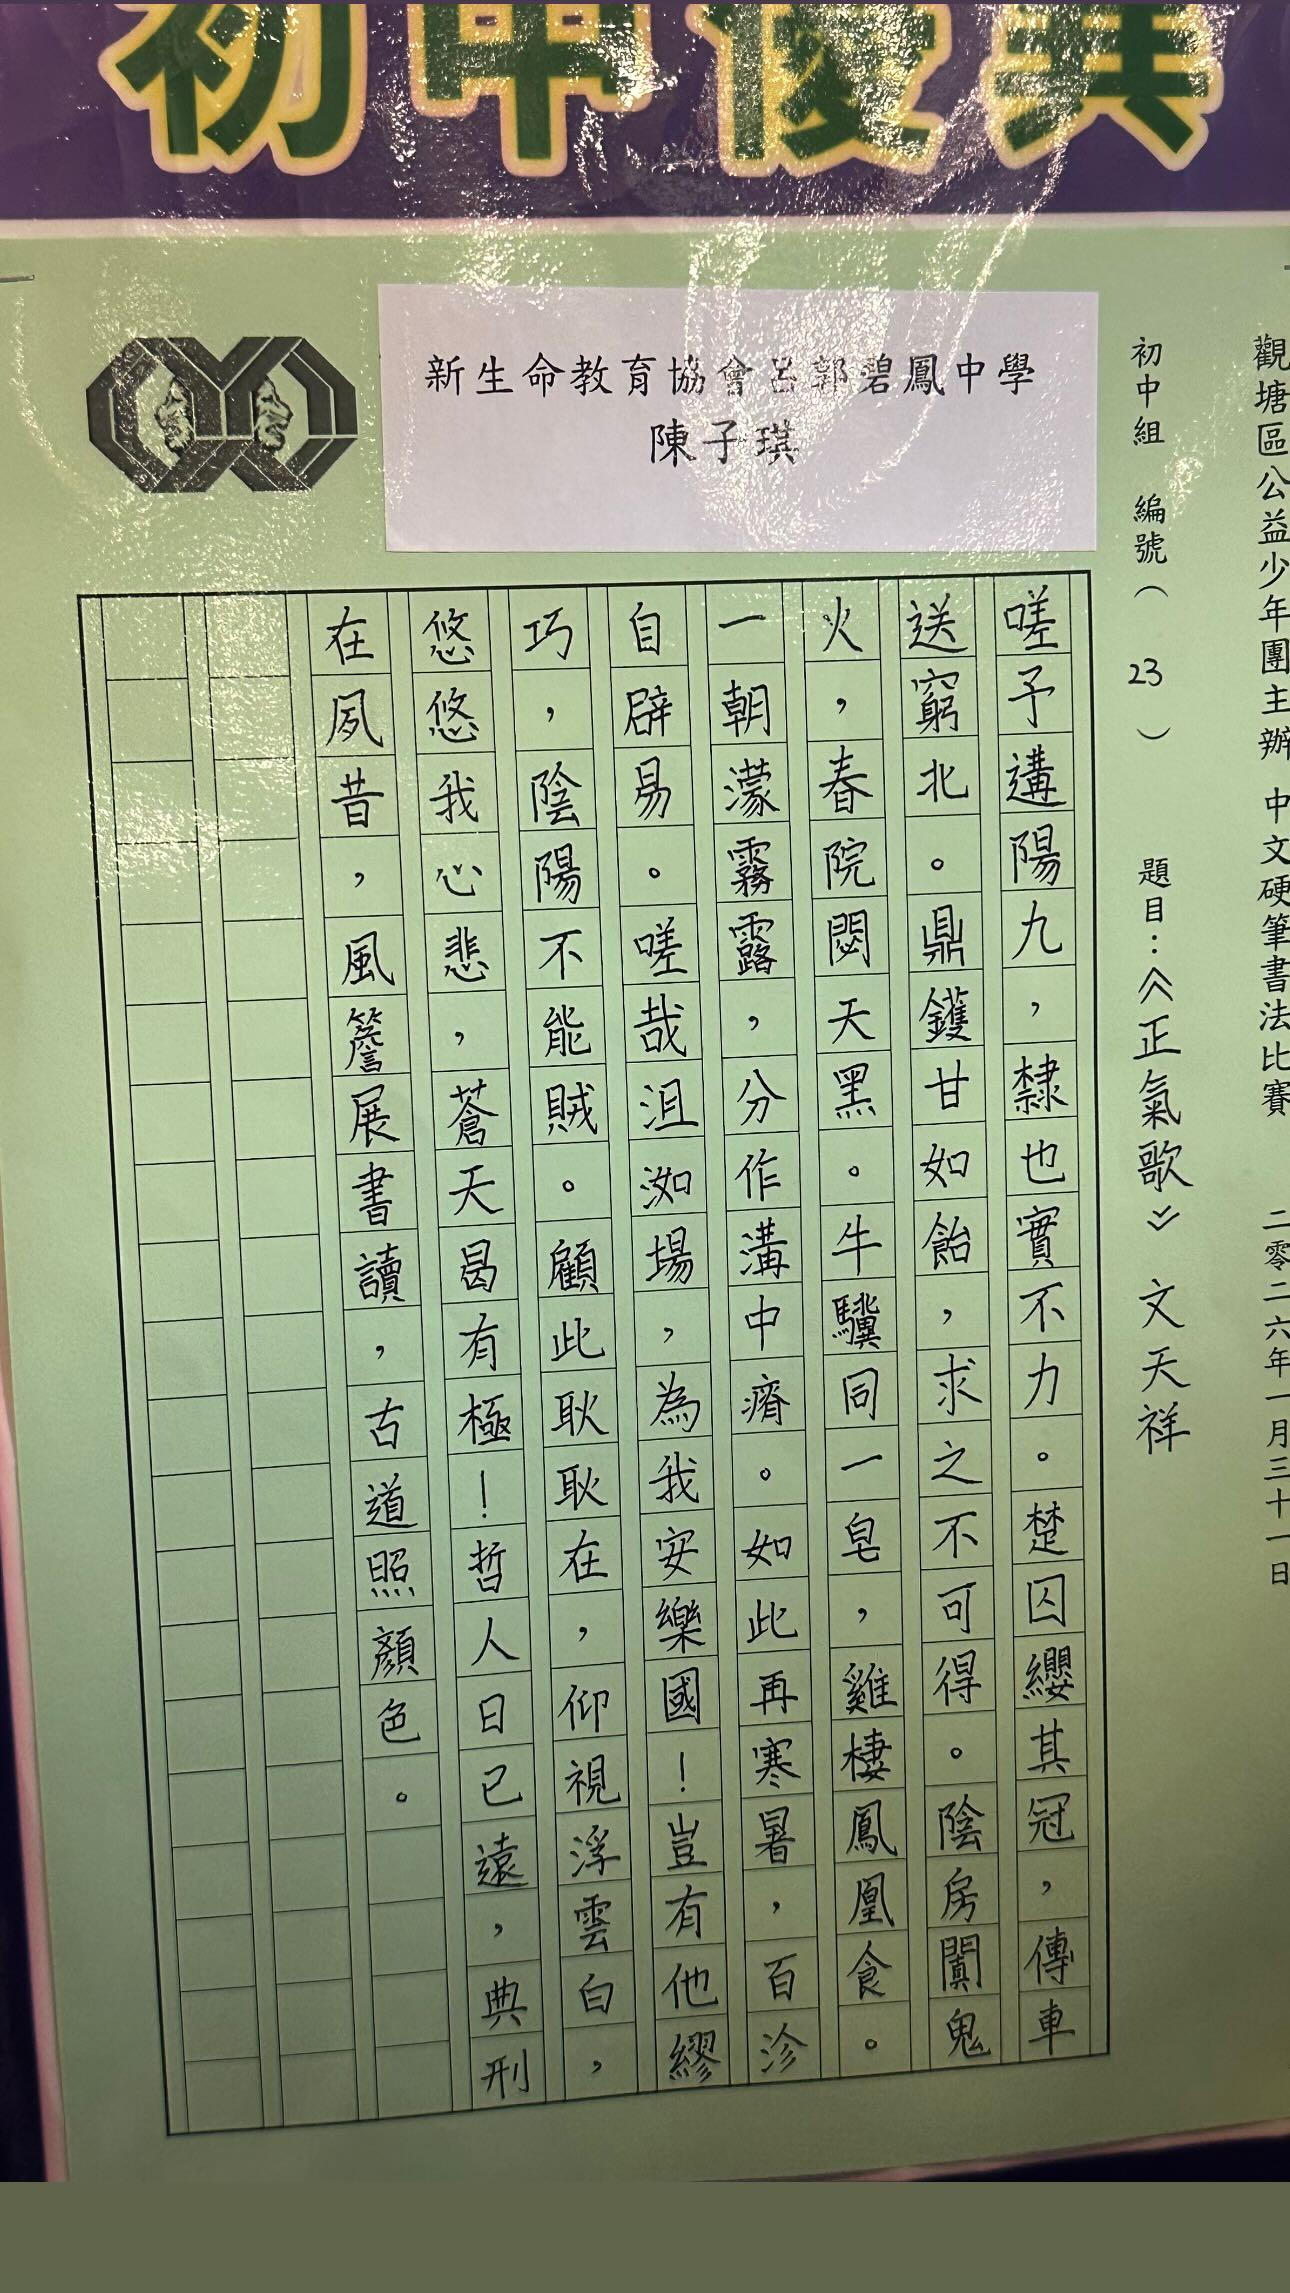 初中優異
新生命教育協會呂郭碧鳳中學
陳子琪
觀塘區公益少年團主辦 中文硬筆書法比賽 二零二六年一月三十一日
初中組 編號（ 23 ） 題目：《正氣歌》 文天祥
嗟予遘陽九，隸也實不力。楚囚纓其冠，傳車
送窮北。鼎鑊甘如飴，求之不可得。陰房闃鬼
火，春院閟天黑。牛驥同一皂，雞棲鳳凰食。
一朝濛霧露，分作溝中瘠。如此再寒暑，百沴
自辟易。嗟哉沮洳場，為我安樂國！豈有他繆
巧，陰陽不能賊。顧此耿耿在，仰視浮雲白，
悠悠我心悲，蒼天曷有極！哲人日已遠，典刑
在夙昔，風簷展書讀，古道照顏色。